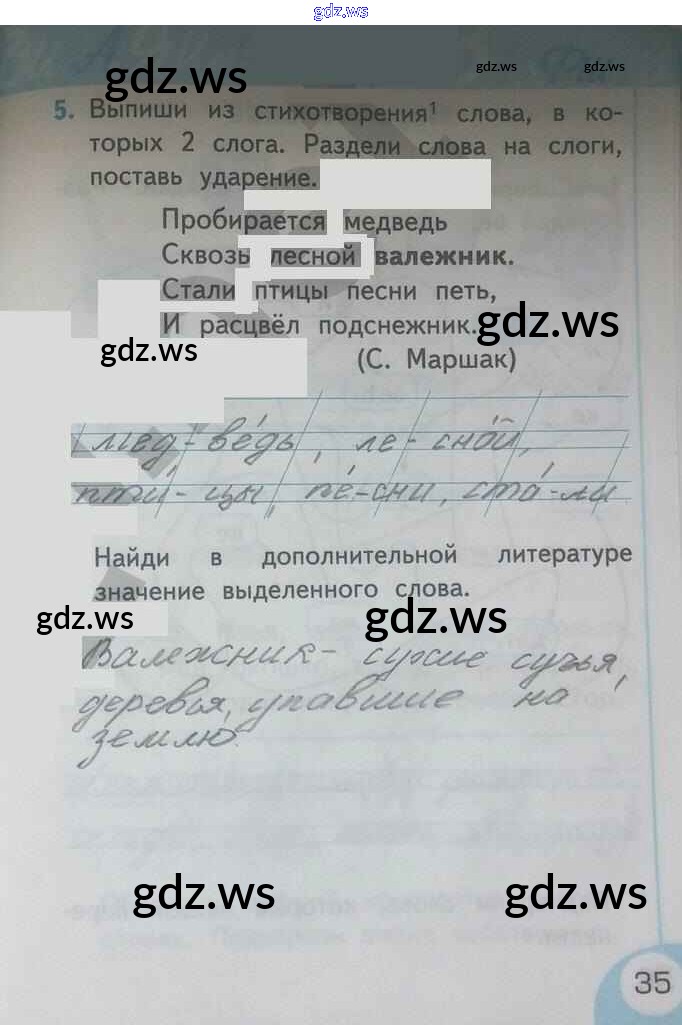 gdz.ws
gdz.ws
gdz.ws gdz.ws
5. Выпиши из стихотворения¹ слова, в ко-
торых 2 слога. Раздели слова на слоги,
поставь ударение.
Пробирается медведь
Сквозь лесной валежник.
Стали птицы песни петь,
И расцвёл подснежник.
gdz.ws
gdz.ws
(С. Маршак)
мед-ве́дь, ле-сно́й,
пти́-цы, пе́-сни, ста́-ли
Найди в дополнительной литературе
значение выделенного слова.
gdz.ws
gdz.ws
Валежник- сухие сучья,
деревья, упавшие на
землю.
gdz.ws
gdz.ws
35